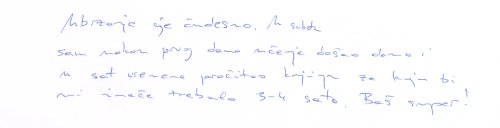 Ubrzanje je čudesno. U subotu
sam nakon prvog dana učenja došao doma i
u sat vremena pročitao knjigu za koju bi
mi inače trebalo 3-4 sata. Baš super!